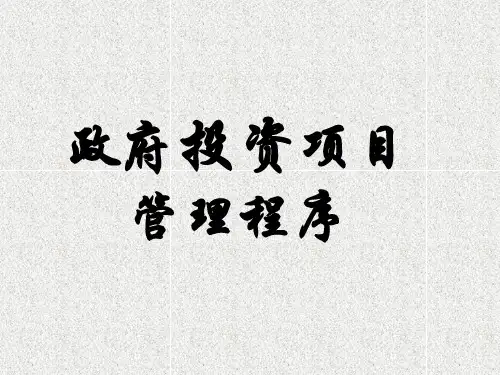 政府投资项目
管理程序